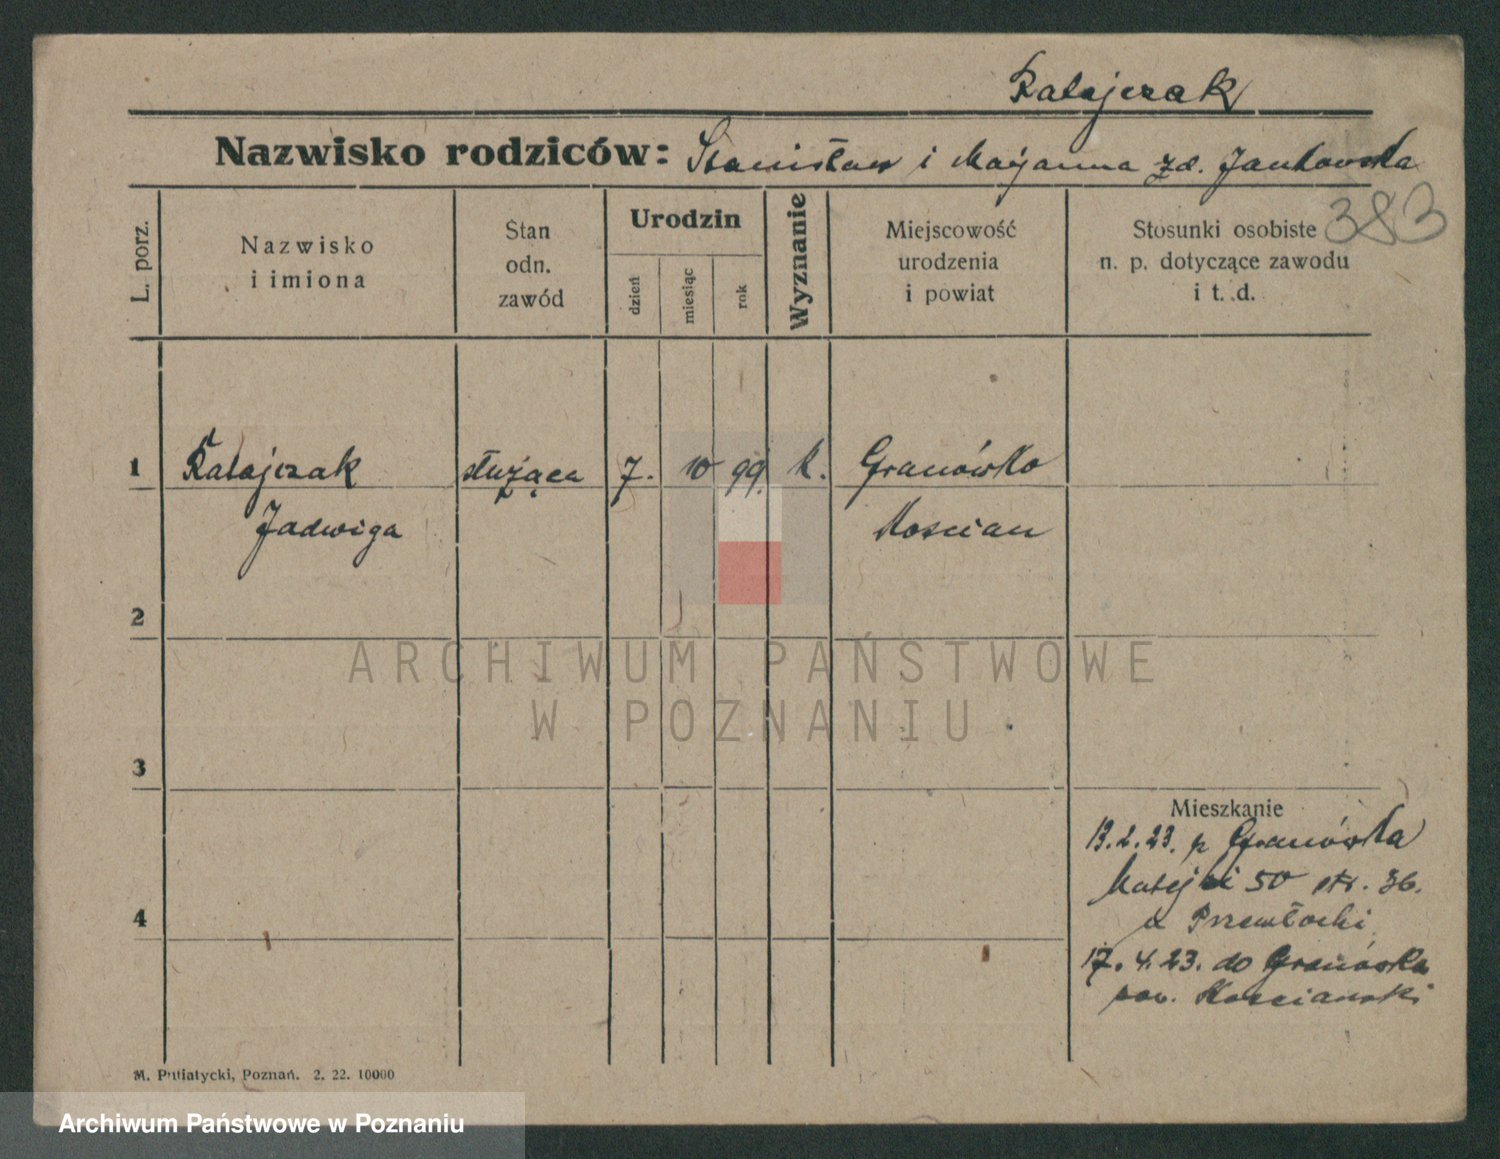 Ratajczak
Nazwisko rodziców: Stanisław i Maryanna zd. Jankowska
383
L. porz.
Nazwisko
i imiona
Stan
odn.
zawód
Urodzin
dzień
miesiąc
rok
Wyznanie
Miejscowość
urodzenia
i powiat
Stosunki osobiste
n. p. dotyczące zawodu
i t. d.
1 Ratajczak służąca 7. 10 99. k. Granówko
Jadwiga Koscian
2
ARCHIWUM PAŃSTWOWE
W POZNANIU
3
Mieszkanie
13.2.23. z Granówka
Matejki 50 str. 36.
u Przewłocki
4
17.4.23. do Granówka
pow. Kosciański
M. Putiatycki, Poznań. 2. 22. 10000
Archiwum Państwowe w Poznaniu